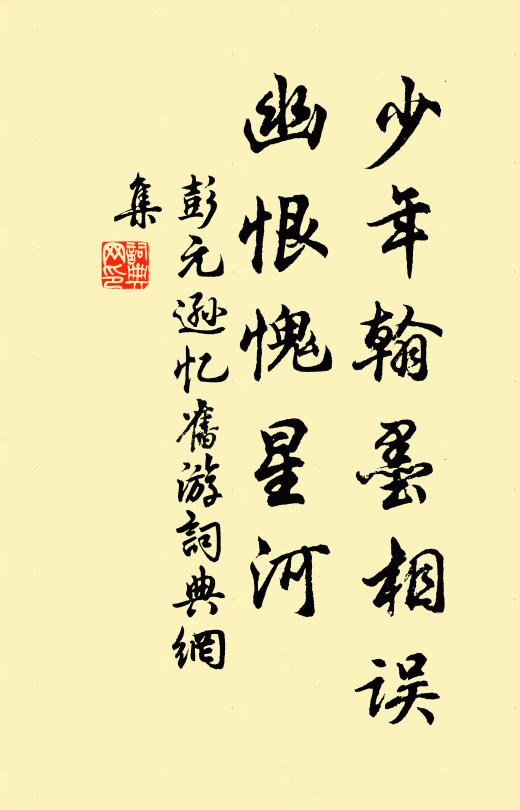 少年翰墨相误
幽恨愧星河
彭元逊忆舊游詞典網
集
詞典网印